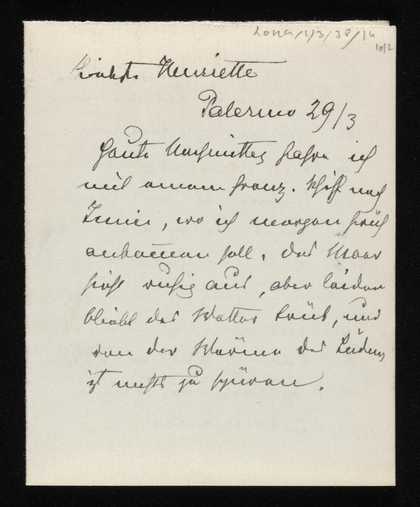 Liebste Henriette
Palermo 29/3
Heute Nachmittag fahre ich
mit einem franz. Schiff nach
Tunis, wo ich morgen früh
ankommen soll. Das Meer
sieht ruhig aus, aber leider
bleibt das Wetter trüb, und
von der Wärme des Südens
ist nichts zu spüren.